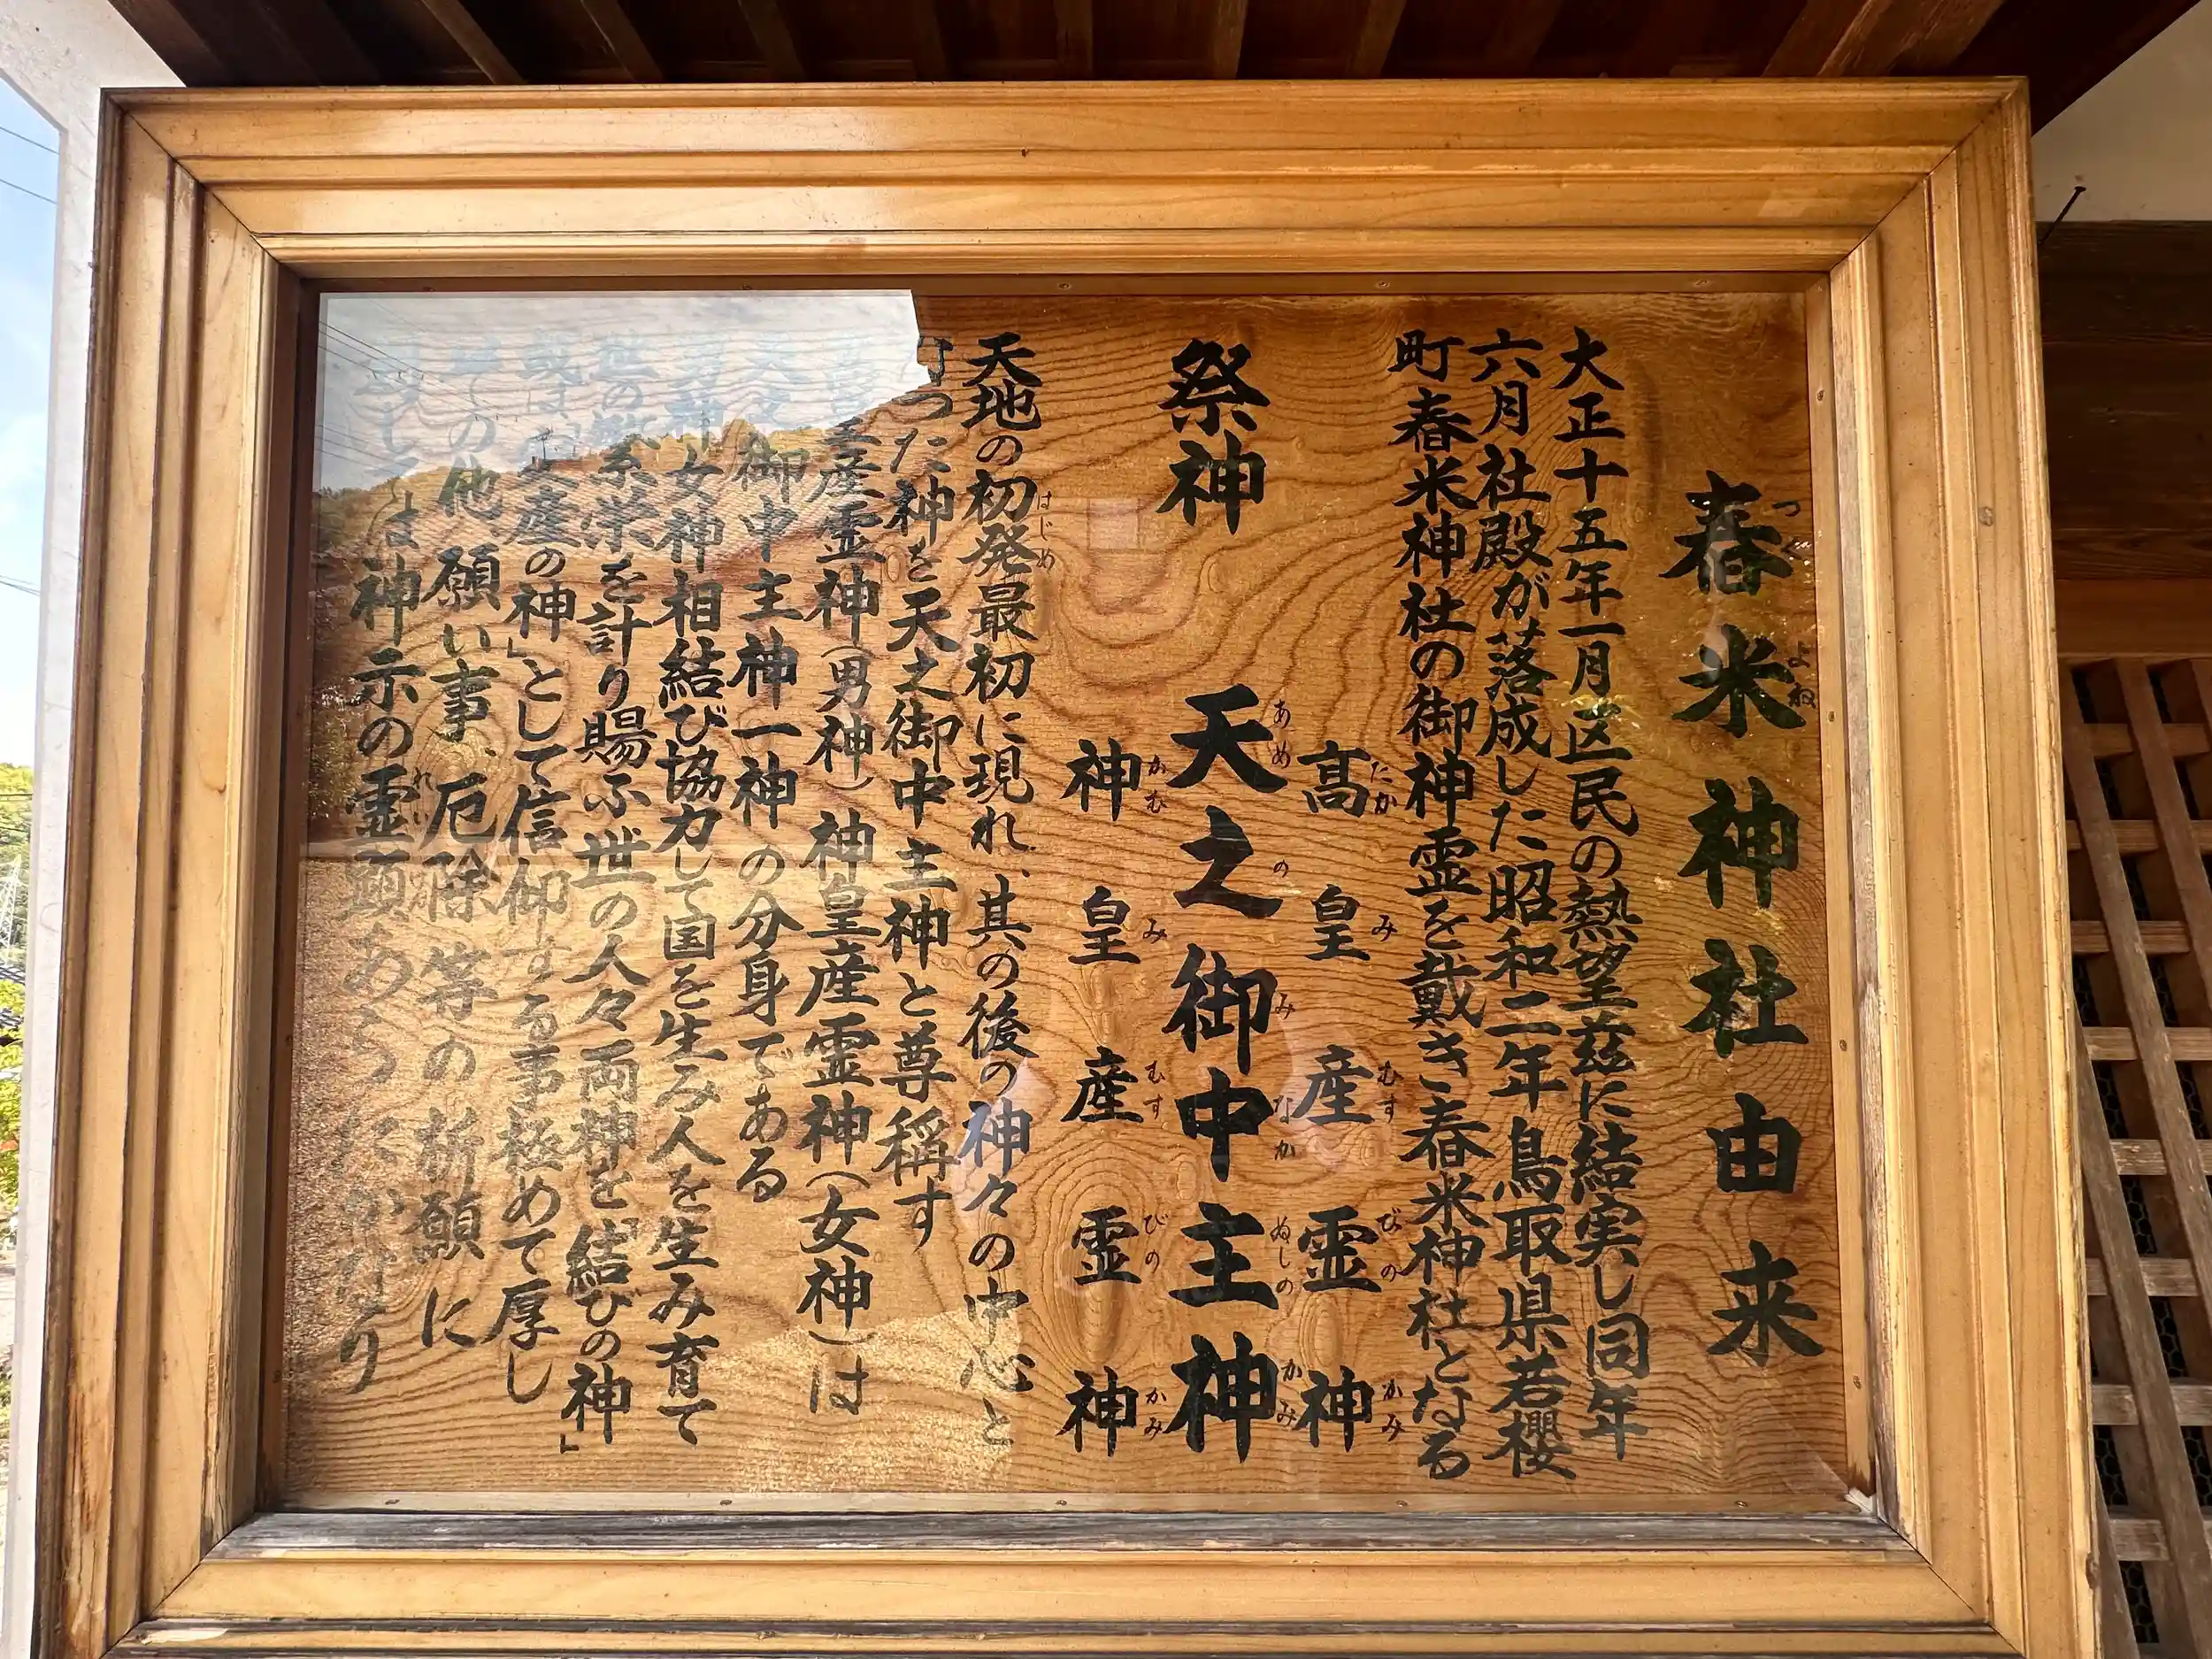 つくよね
舂米神社由来
大正十五年一月区民の熱望玆に結実し同年
六月社殿が落成した昭和二年鳥取県若櫻
町舂米神社の御神霊を戴き舂米神社となる
たかみむすびのかみ
高皇産霊神
祭神 天之御中主神
あめのみなかぬしのかみ
神皇産霊神
かむみむすびのかみ
はじめ
天地の初発最初に現れ、其の後の神々の中心と
なった神を天之御中主神と尊稱す
皇産霊神（男神）神皇産霊神（女神）は
御中主神一神の分身である
男神女神相結び協力して国を生み人を生み育て
世の繁栄を計り賜ふ世の人々両神を「結びの神」
或は の神」として信仰する事極めて厚し
の他願い事、厄除等の祈願に
れい
は神示の霊顕あらたかなり